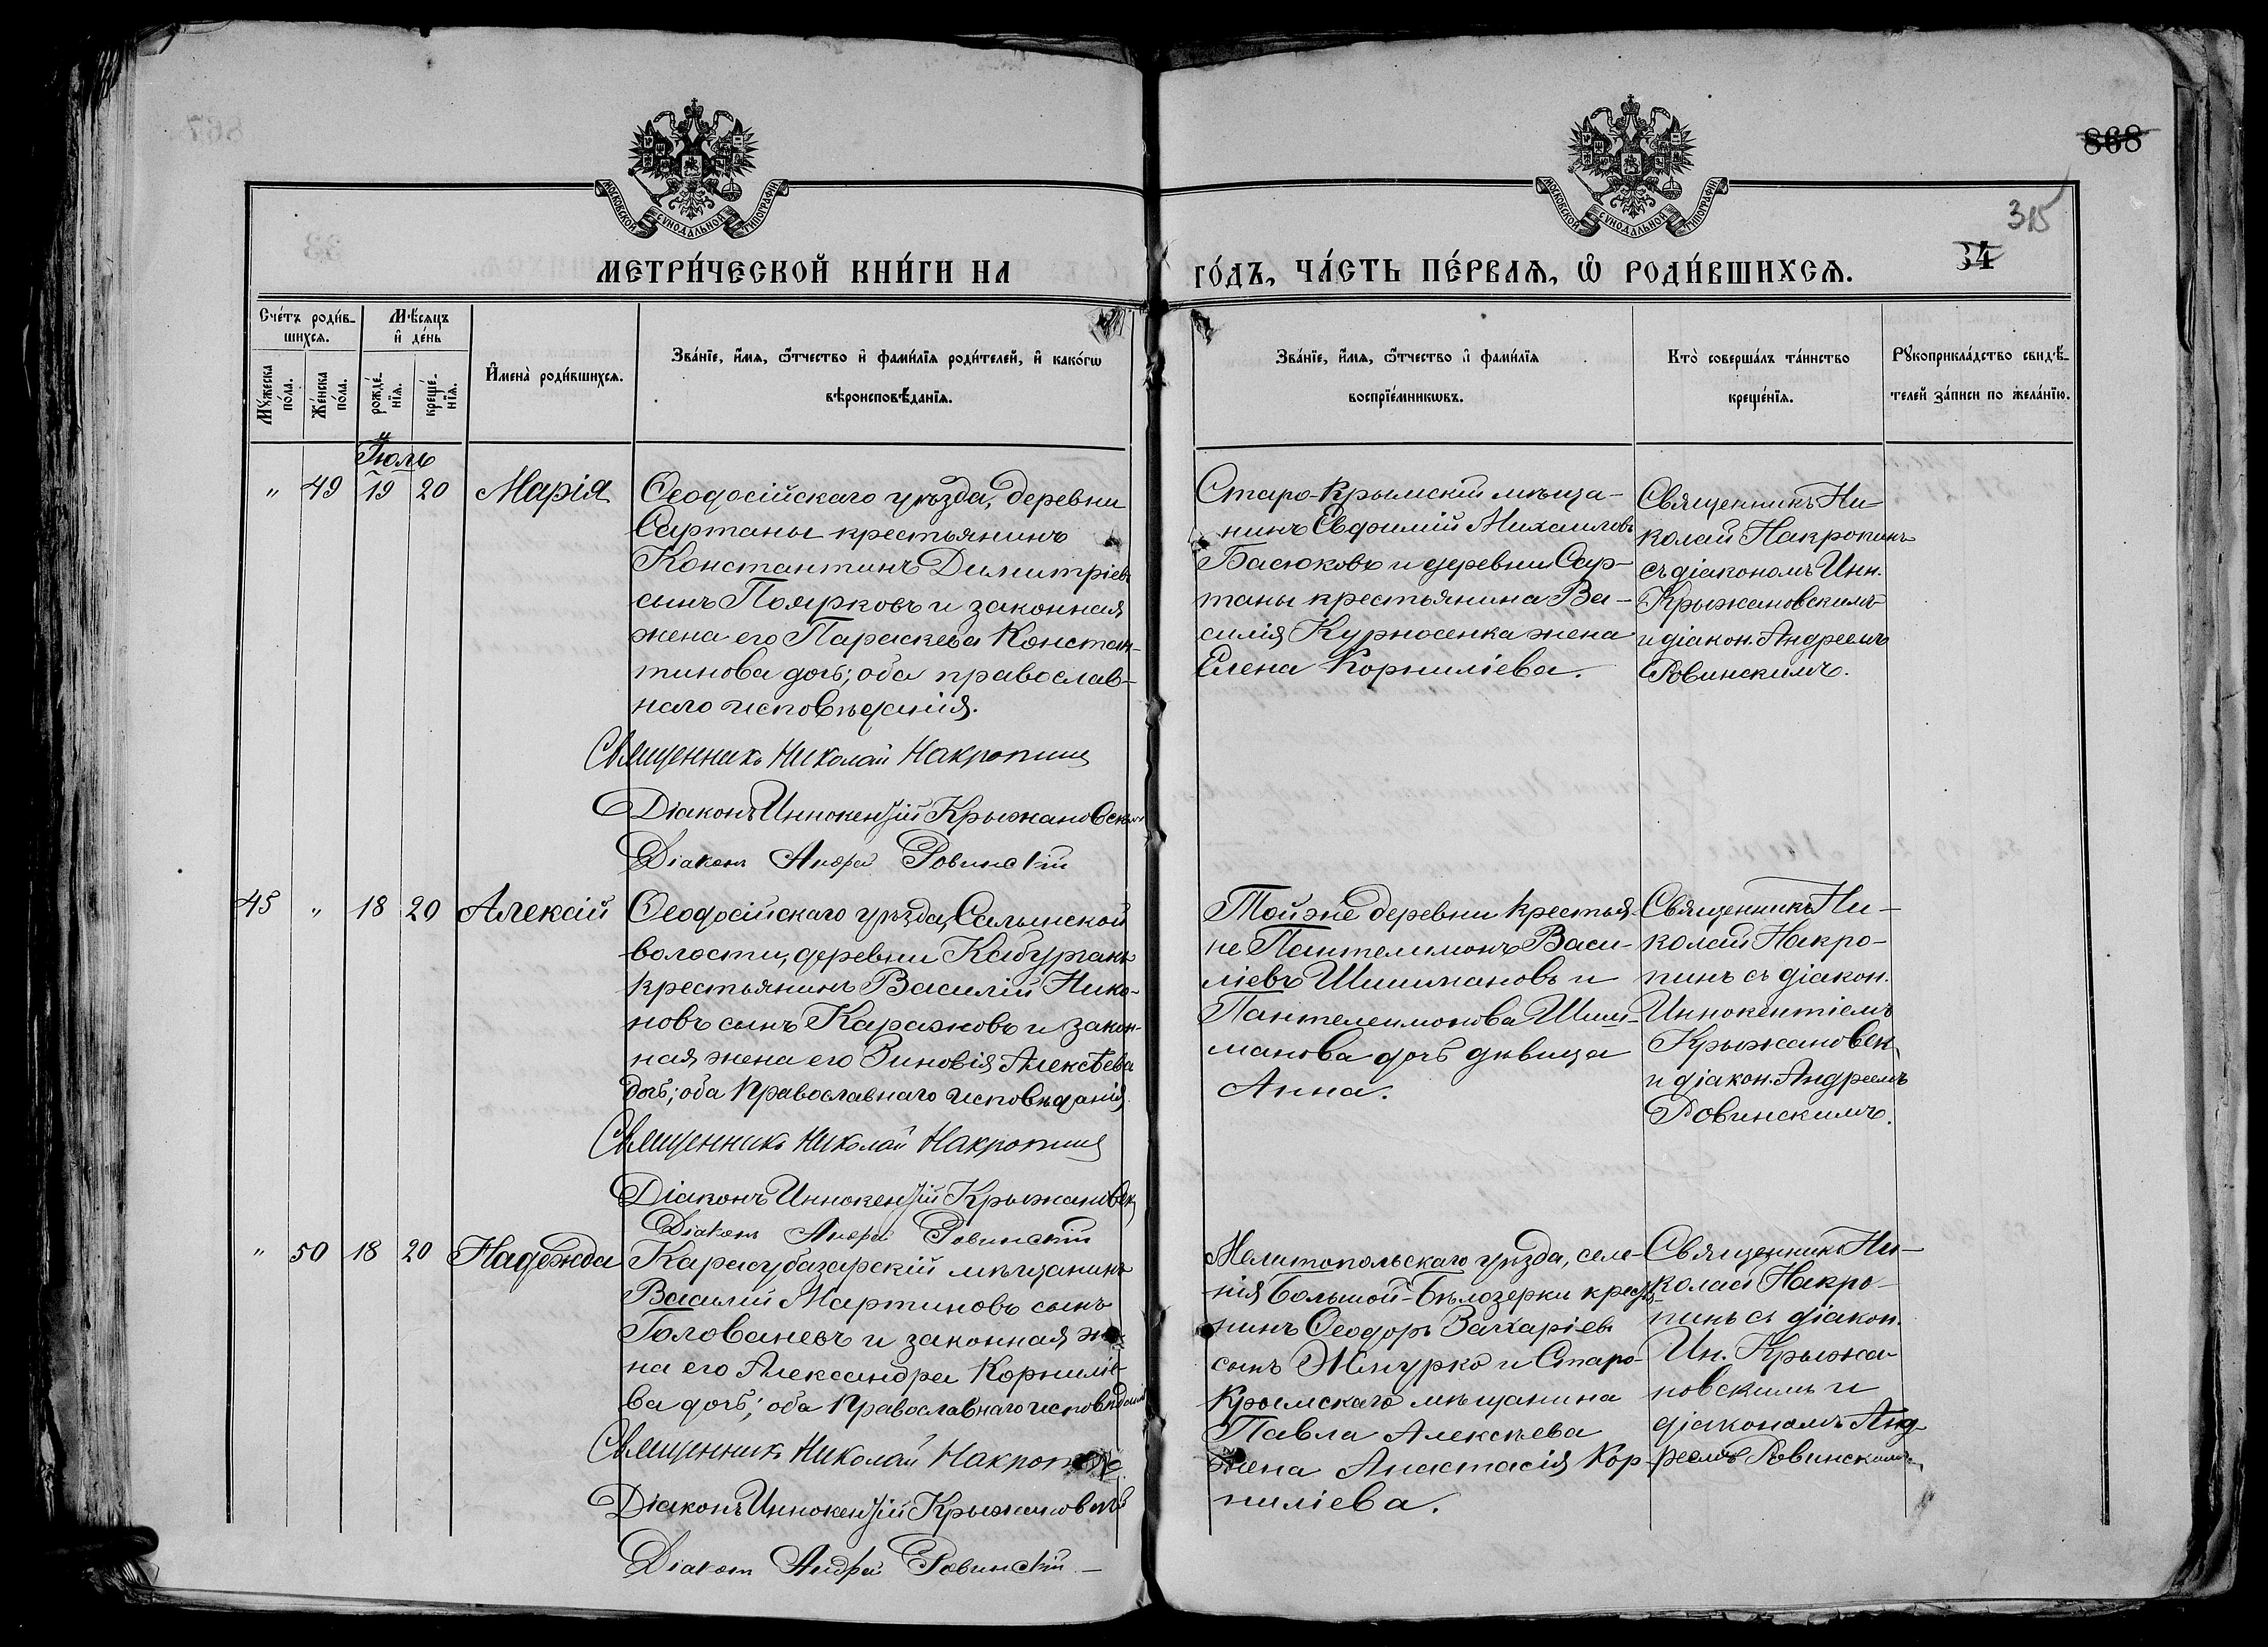 868
315
34
МОСКОВСКОЙ СѴНОДАЛЬНОЙ ТИПОГРАФІИ
МОСКОВСКОЙ СѴНОДАЛЬНОЙ ТИПОГРАФІИ
МЕТРИ́ЧЕСКОЙ КНИ́ГИ НА
ГО́ДЪ, ЧА́СТЬ ПЕ́РВАѦ, Ѡ҆ РОДИ́ВШИХСѦ.
Сче́тъ роди́в-
шихсѧ.
Мꙋ́жеска
по́ла.
Же́нска
по́ла.
Мѣ́сѧцъ
и҆ де́нь
рожде́-
нїѧ.
креще́-
нїѧ.
И҆мена̀ роди́вшихсѧ.
Зва́нїе, и҆́мѧ, ѻ҆́тчество и҆ фами́лїѧ роди́телей, и҆ како́гѡ
вѣроисповѣ́данїѧ.
Зва́нїе, и҆́мѧ, ѻ҆́тчество и҆ фами́лїѧ
воспрїе́мникѡвъ.
Кто̀ соверша́лъ та́инство
креще́нїѧ.
Рꙋкоприкла́дство свидѣ́-
телей за́писи по жела́нїю.
Іюль
" 49 19 20 Марія
Ѳеодосійскаго уѣзда, деревни
Сартаны крестьянинъ
Константинъ Димитріевъ
сынъ Поярковъ и законная
жена его Параскева Констан-
тинова дочь; оба православ-
наго исповѣданія.
Священникъ Николай Накропинъ
Діаконъ Иннокентій Крыжановскій
Діаконъ Андрей Ровинскій
Старо-Крымскій мѣща-
нинъ Евфимій Михаиловъ
Басюковъ и деревни Сар-
таны крестьянина Ва-
силія Курносенка жена
Елена Корниліева.
Священникъ Ни-
колай Накропинъ
съ діакономъ Инн.
Крыжановскимъ
и діакон. Андреемъ
Ровинскимъ.
45 " 18 20 Алексій
Ѳеодосійскаго уѣзда, Салынской
волости, деревни Кабурганъ
крестьянинъ Василій Нико-
новъ сынъ и закон-
ная жена его Зиновія Алексѣева
дочь; оба православнаго исповѣданія.
Священникъ Николай Накропинъ
Діаконъ Иннокентій Крыжановск
Діаконъ Андрей Ровинскій
Той же деревни крестья-
не Пантелимонъ Васи-
ліевъ Шишмановъ и
Пантелеимонова Шиш-
манова дочь дѣвица
Анна.
Священникъ Ни-
колай Накро-
пинъ съ діакон.
Иннокентіемъ
Крыжановск.
и діакон. Андреемъ
Ровинскимъ.
" 50 18 20 Надежда
Карасубазарскій мѣщанинъ
Василій Мартиновъ сынъ
Голованевъ и законная же-
на его Александра Корниліе-
ва дочь; оба православнаго исповѣданія
Священникъ Николай Накропинъ
Діаконъ Иннокентій Крыжановскій
Діаконъ Андрей Ровинскій
Мелитопольскаго уѣзда, селе-
нія Большой-Бѣлозерки крестья-
нинъ Ѳеодоръ Захаріевъ
сынъ Жмурко и Старо-
Крымскаго мѣщанина
Павла Алексѣева
жена Анастасія Кор-
ниліева.
Священникъ Ни-
колай Накро-
пинъ съ діакон.
Ин. Крыжа-
новскимъ и
діакономъ Анд-
реемъ Ровинскимъ.